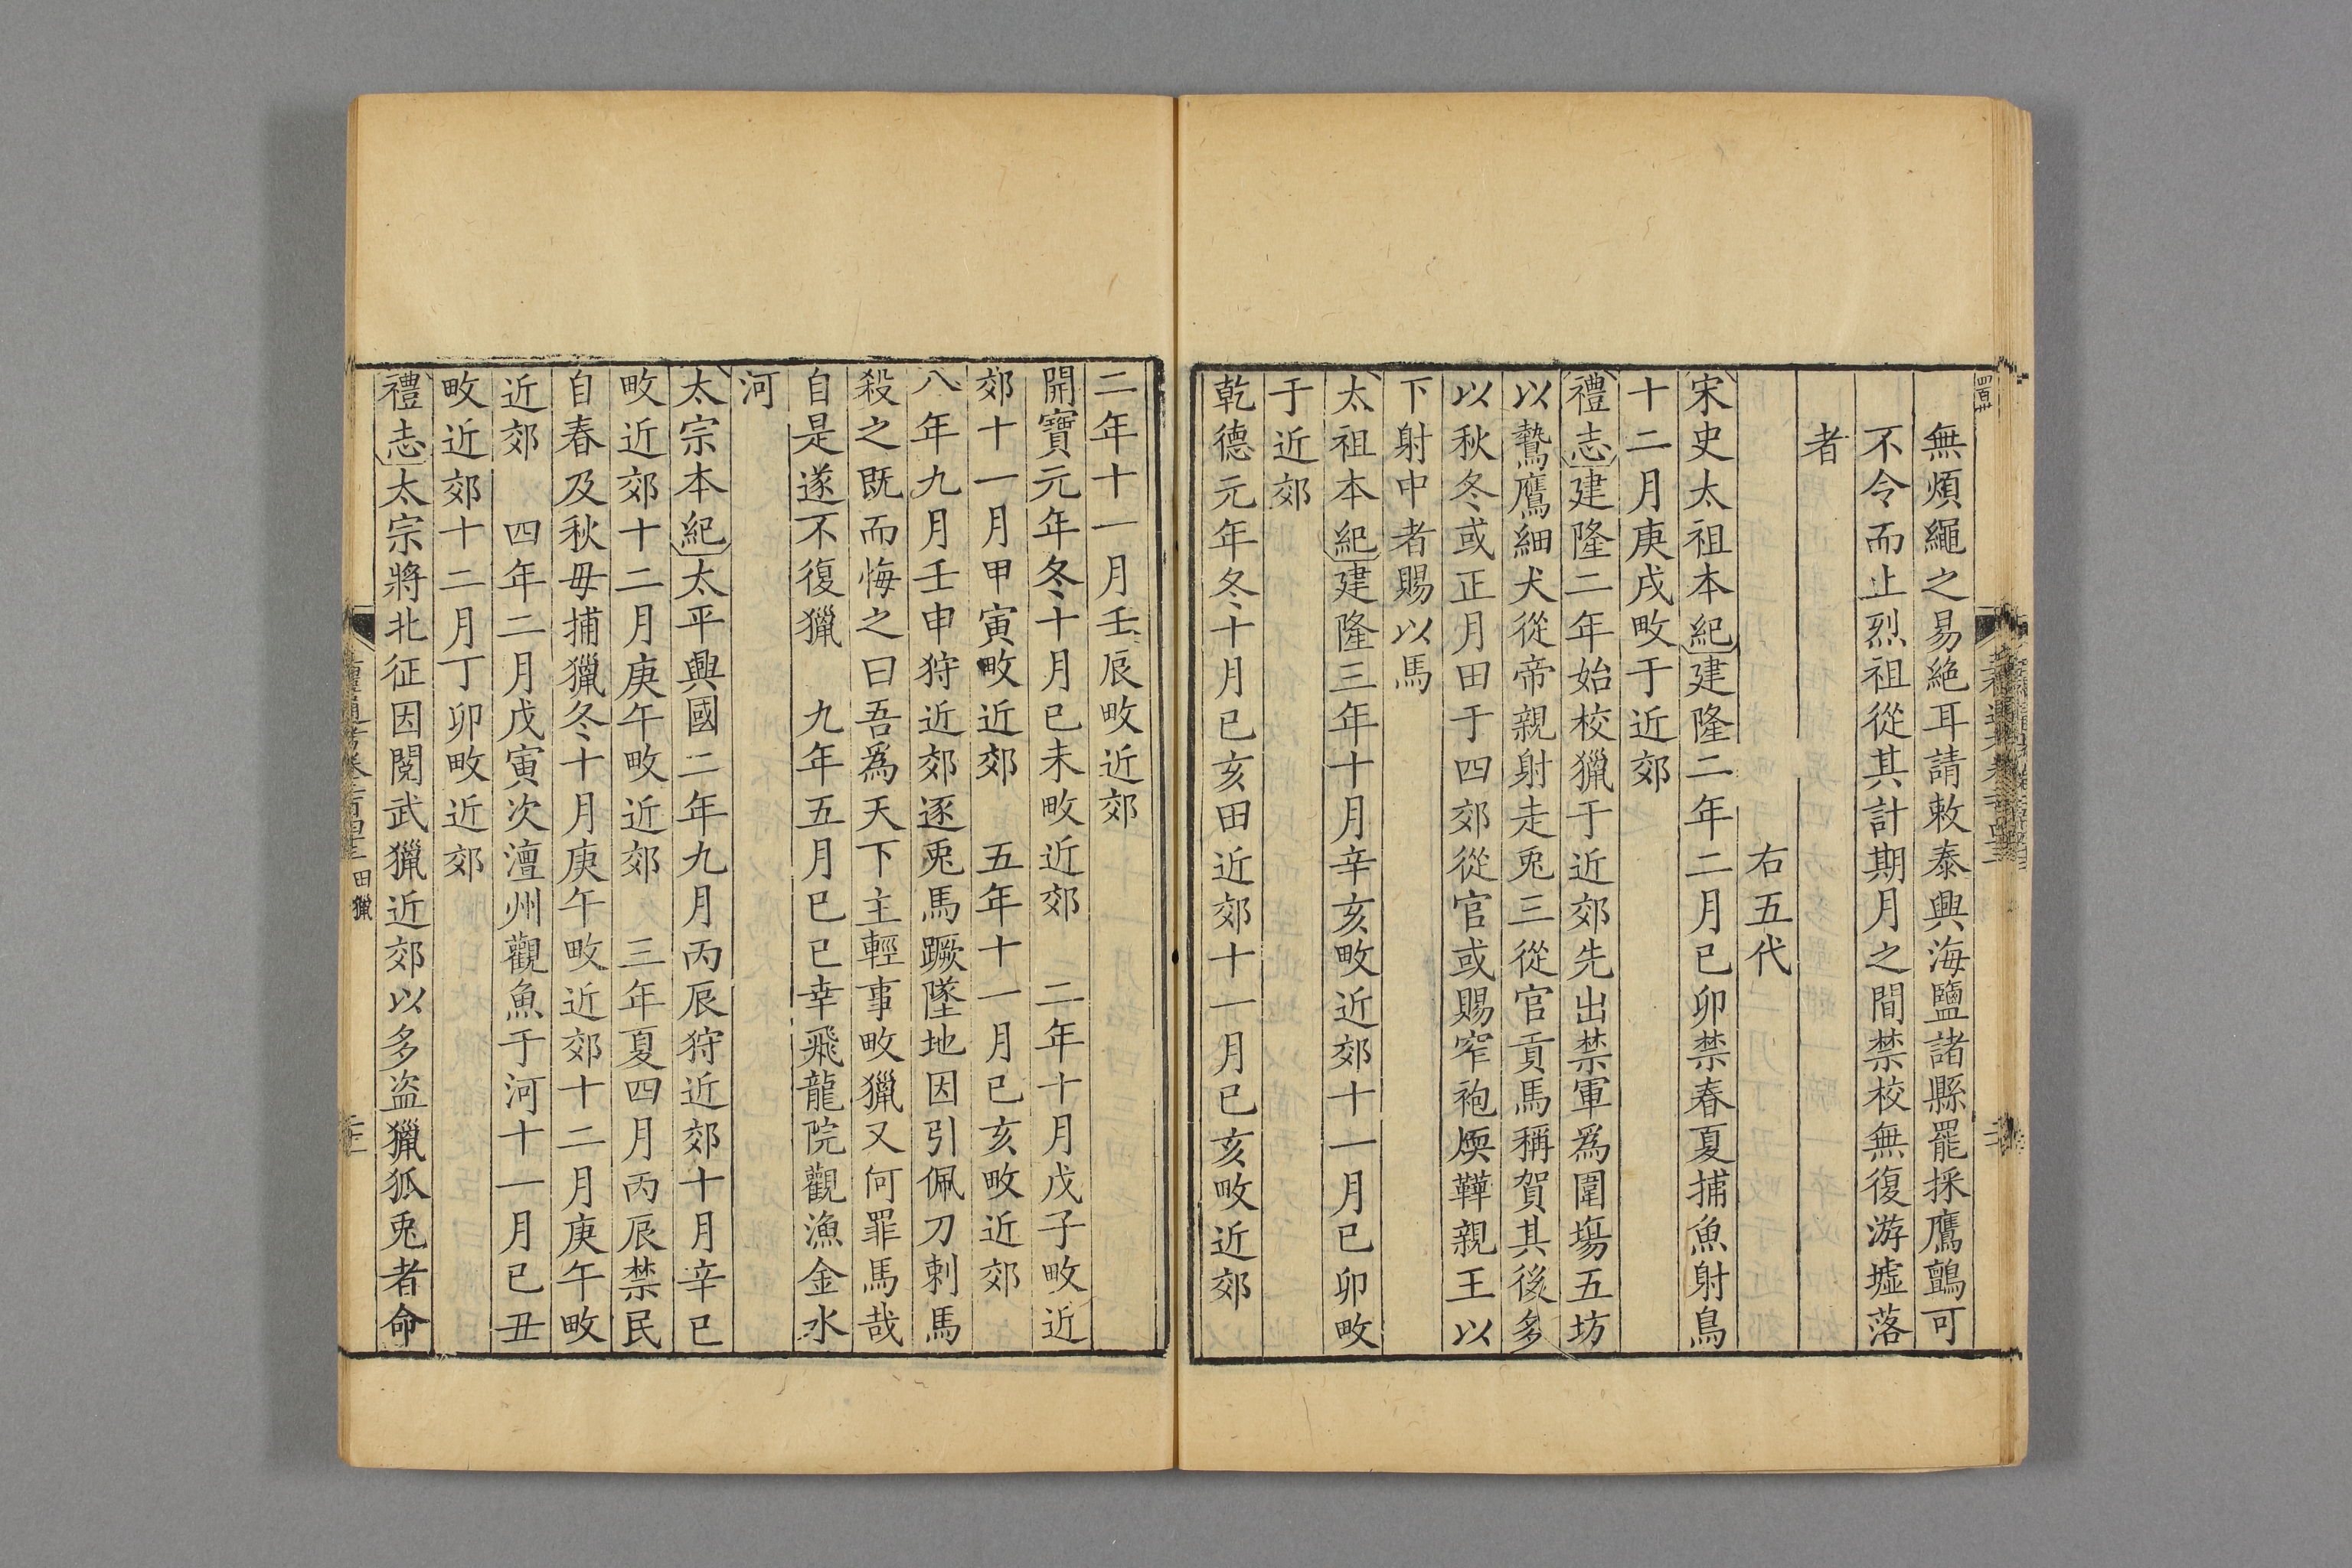 無煩繩之易絶耳請敕泰興海鹽諸縣罷採鷹鸇可
不令而止烈祖從其計期月之間禁校無復游墟落
者
右五代
宋史太祖本紀建隆二年二月己卯禁春夏捕魚射鳥
十二月庚戌畋于近郊
禮志建隆二年始校獵于近郊先出禁軍爲圍塲五坊
以鷙鷹細犬從帝親射走兎三從官貢馬稱賀其後多
以秋冬或正月田于四郊從官或賜窄袍㷼鞾親王以
下射中者賜以馬
太祖本紀建隆三年十月辛亥畋近郊十一月已卯畋
于近郊
乾德元年冬十月已亥田近郊十一月已亥畋近郊
二年十一月壬辰畋近郊
開寶元年冬十月已未畋近郊　二年十月戊子畋近
郊十一月甲寅畋近郊　五年十一月已亥畋近郊
八年九月壬申狩近郊逐兎馬蹶墜地因引佩刀刺馬
殺之既而悔之曰吾爲天下主輕事畋獵又何罪馬哉
自是遂不復獵　九年五月已已幸飛龍院觀漁金水
河
太宗本紀太平興國二年九月丙辰狩近郊十月辛已
畋近郊十二月庚午畋近郊　三年夏四月丙辰禁民
自春及秋毋捕獵冬十月庚午畋近郊十二月庚午畋
近郊　四年二月戊寅次澶州觀魚于河十一月已丑
畋近郊十二月丁卯畋近郊
禮志太宗將北征因閱武獵近郊以多盜獵狐兎者命
田獵